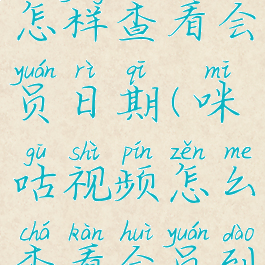 怎样查看会
yuán rì qī mī
员日期(咪
gū shì pín zěn me
咕视频怎么
chá kàn huì yuán dào
查看会员到